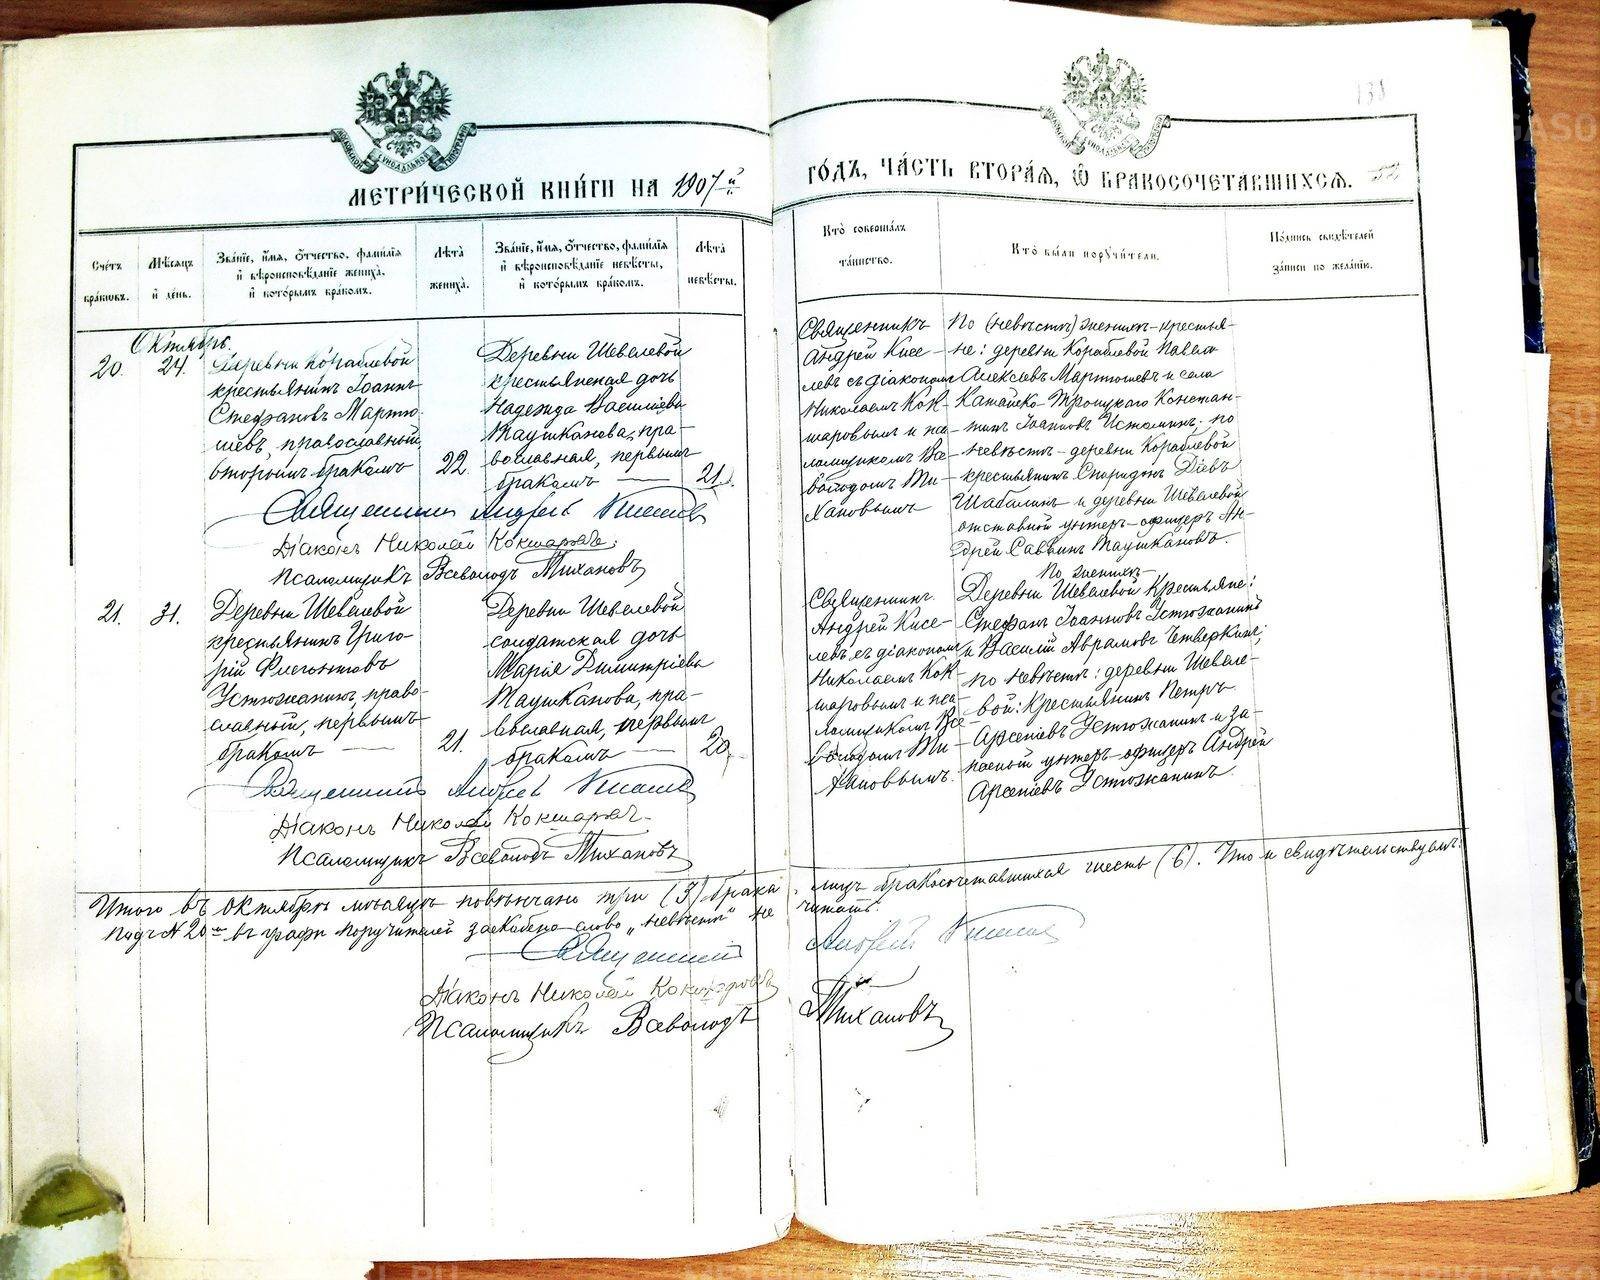 138
МЕТРИ́ЧЕСКОЙ КНИ́ГИ НА 1907й
ГО́ДЪ, ЧА́СТЬ ВТОРА́Я, Ѿ БРАКОСОЧЕТА́ВШИХСЯ.
Сче́тъ бра́ковъ.
Мѣ́сяцъ и́ де́нь.
Зва́нїе, и́мя, ѻ́тчество, фами́лїя и́ вѣроисповѣ́данїе жениха́, и́ кото́рымъ бра́комъ.
Лѣта̀ жениха̀.
Зва́нїе, и́мя, ѻ́тчество, фами́лїя и́ вѣроисповѣ́данїе невѣ́сты, и́ кото́рымъ бра́комъ.
Лѣта̀ невѣ́сты.
Кто̀ соверша́лъ та́инство.
Кто̀ бы́ли поручи́тели.
По́дпись свидѣ́телей за́писи по жела́нїю.
Октябрь.
20. 24.
Деревни Кораблевой
крестьянинъ Іоаннъ
Стефановъ Мартю-
шевъ, православный,
вторымъ бракомъ
22.
Деревни Шевелевой
крестьянская дочь
Надежда Василіева
Таушканова, пра-
вославная, первымъ
бракомъ —
21.
Священникъ
Андрей Кисе-
левъ съ діакономъ
Николаемъ Кок-
шаровымъ и пса-
ломщикомъ Все-
володомъ Ти-
хановымъ
По (невѣстѣ) женихѣ – крестья-
не: деревни Кораблевой Павелъ
Алексѣевъ Мартюшевъ и села
Катайско-Троицкаго Констан-
тинъ Іоанновъ Истоминъ; по
невѣстѣ – деревни Кораблевой
крестьянинъ Спиридонъ Діевъ
Шабалинъ и деревни Шевелевой
отставной унтеръ-офицеръ Ан-
дрей Саввинъ Таушкановъ.
Священникъ Андрей Киселевъ
Діаконъ Николай Кокшаровъ.
Псаломщикъ Всеволодъ Тихановъ
21. 31.
Деревни Шевелевой
крестьянинъ Григо-
рій Флегонтовъ
Устюжанинъ, право-
славный, первымъ
бракомъ —
21.
Деревни Шевелевой
солдатская дочь
Марія Димитріева
Таушканова, пра-
вославная, первымъ
бракомъ —
20.
Священникъ
Андрей Кисе-
левъ съ діакономъ
Николаемъ Кок-
шаровымъ и пса-
ломщикомъ Все-
володомъ Ти-
хановымъ.
По женихѣ –
Деревни Шевелевой Крестьяне:
Стефанъ Іоанновъ Устюжанинъ
и Василій Аврамовъ Четверкинъ;
по невѣстѣ: деревни Шевеле-
вой: Крестьянинъ Петръ
Арсеніевъ Устюжанинъ и за-
пасный унтеръ-офицеръ Андрей
Арсеніевъ Устюжанинъ.
Священникъ Андрей Киселевъ
Діаконъ Николай Кокшаровъ
Псаломщикъ Всеволодъ Тихановъ
Итого въ октябрѣ мѣсяцѣ повѣнчано три (3) брака, лицъ бракосочетавшихся шесть (6). Что и свидѣтельствуемъ.
Подъ № 20м въ графѣ поручителей заскоблено слово „невѣстѣ“ не читать.
Священникъ Андрей Киселевъ
Діаконъ Николай Кокшаровъ
Псаломщикъ Всеволодъ Тихановъ